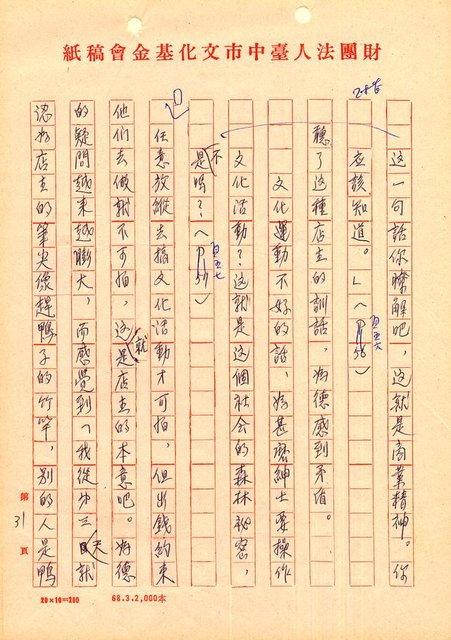 財團法人臺中市文化基金會稿紙
2-8苦
這一句話你瞭解吧，這就是商業精神。你
應該知道。」（P56）
頁五六
聽了這種店主的訓話，灼德感到矛盾。
文化運動不好的話，為甚麼紳士要操作
文化活動？這就是這個社會的森林秘密，
不是嗎？（P57）
頁五七
任意放縱去搞文化活動才可怕，但出錢約束
他們去做就不可怕，這就是店主的本意吧。灼德
的疑問越來越膨大，而感覺到「我從步三天就
認為店主的筆尖像趕鴨子的竹竿，別的人是鴨
第31頁
20×10=200
68.3.2,000本